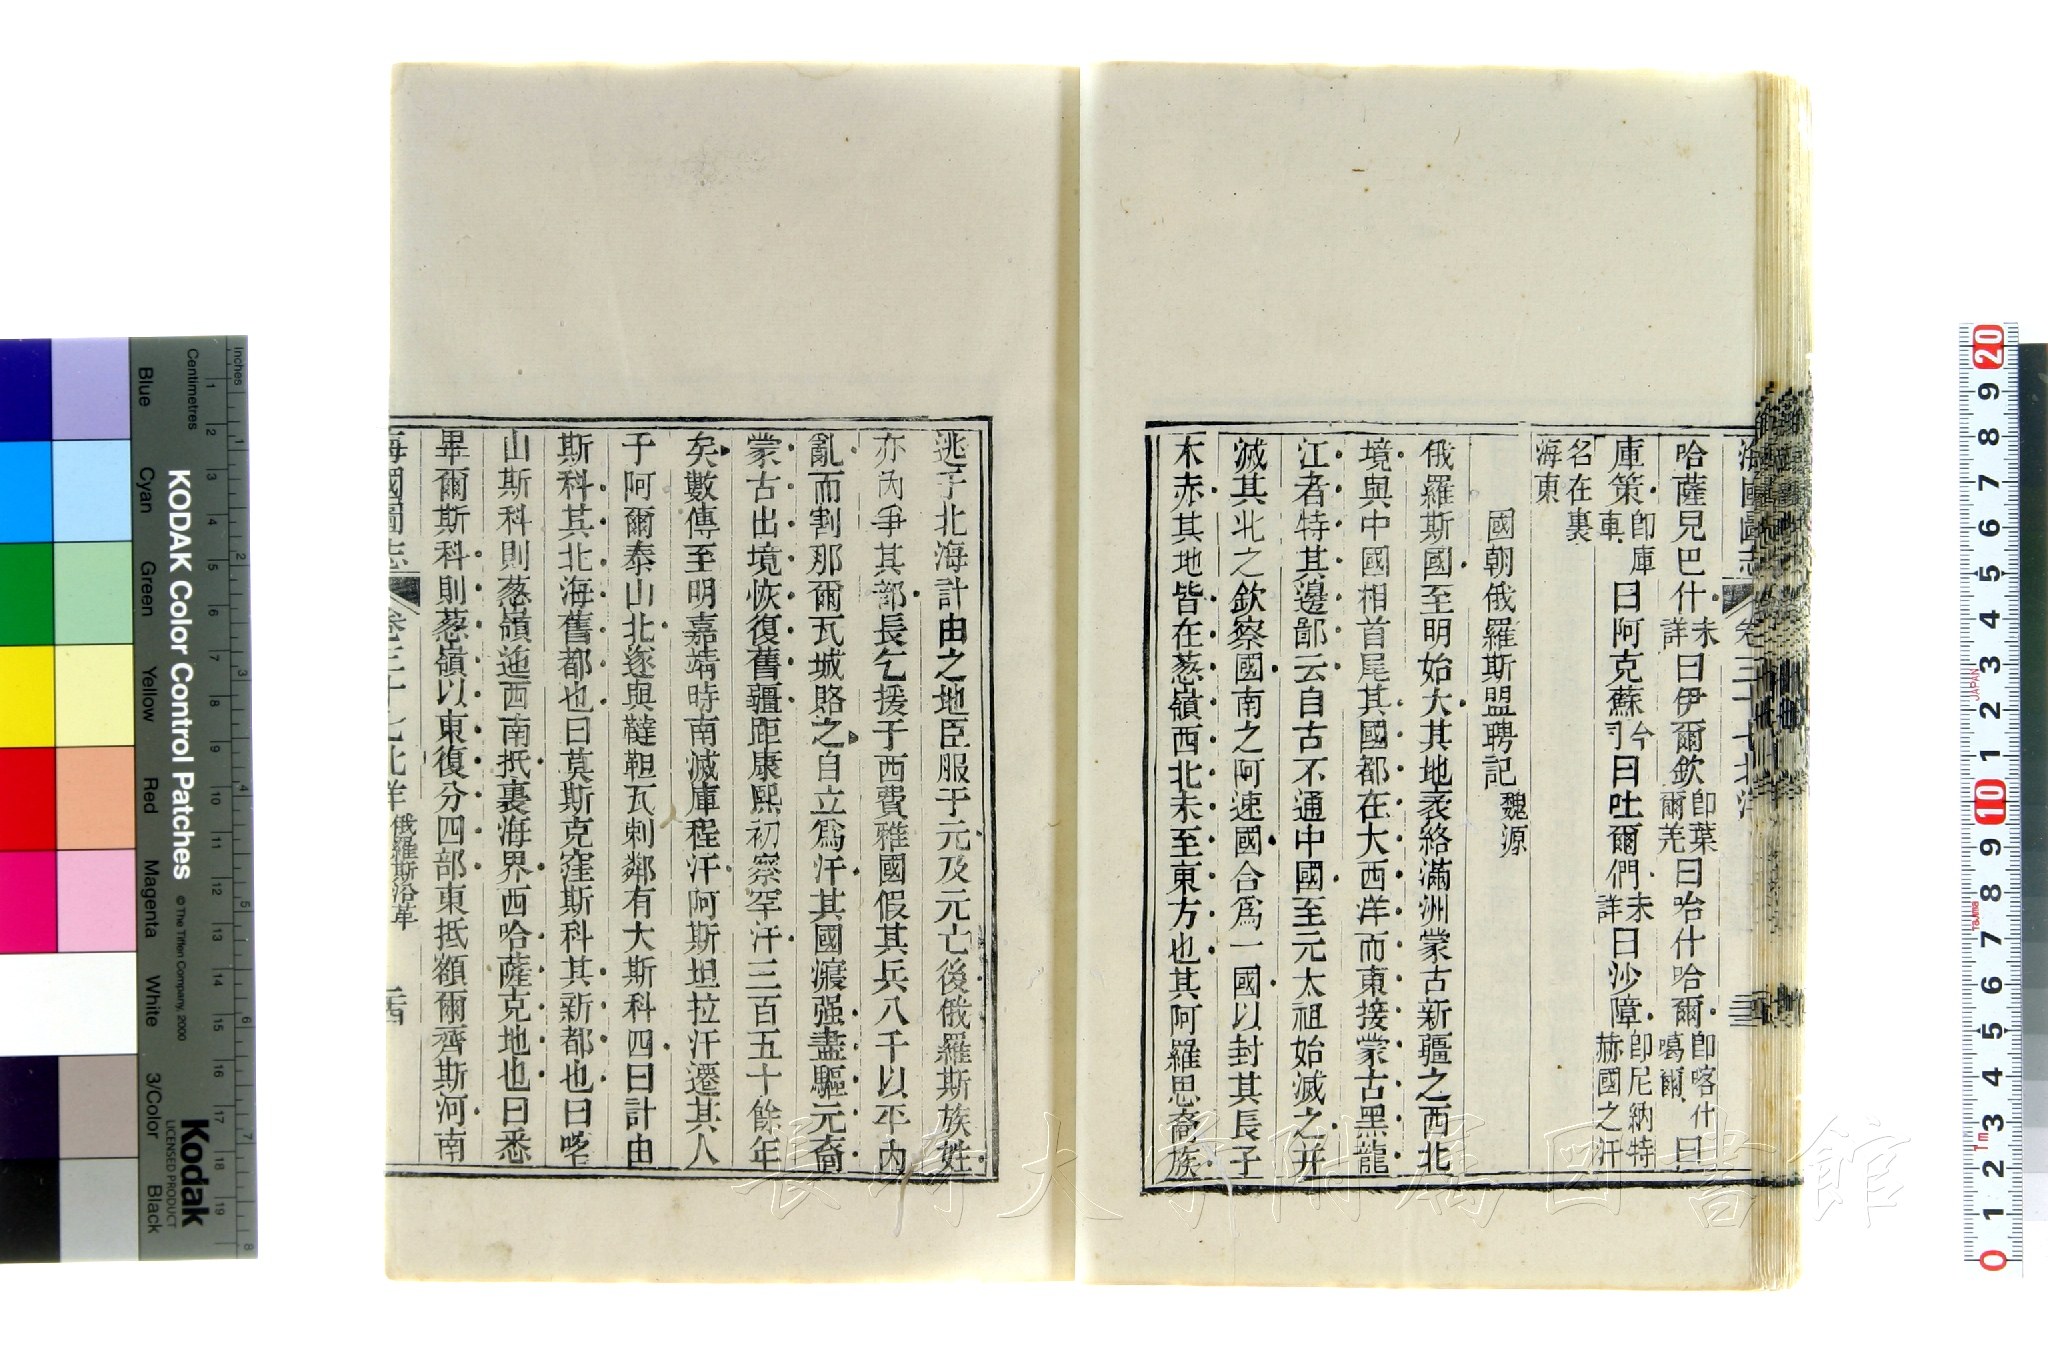 海國圖志 卷三十七 北洋
哈薩兄巴什未詳曰伊爾欽卽葉爾羌曰哈什哈爾卽喀什噶爾曰
庫策卽庫車曰阿克蘇今司曰吐爾們未詳曰沙障卽尼納特赫國之汗
名在裏海東
國朝俄羅斯盟聘記 魏源
俄羅斯國至明始大其地袤絡滿洲蒙古新疆之西北
境與中國相首尾其國都在大西洋而東接蒙古黑龍
江者特其邊鄙云自古不通中國至元太祖始滅之并
滅其北之欽察國南之阿速國合爲一國以封其長子
木赤其地皆在葱嶺西北未至東方也其阿羅思裔族
逃于北海計由之地臣服于元及元亡後俄羅斯族姓
亦內爭其部長乞援于西費雅國假其兵八千以平內
亂而割那爾瓦城賂之自立爲汗其國寢强盡驅元裔
蒙古出境恢復舊疆距康熙初察罕汗三百五十餘年
矣數傳至明嘉靖時南滅庫程汗阿斯坦拉汗遷其人
于阿爾泰山北遂與韃靼瓦剌鄰有大斯科四曰計由
斯科其北海舊都也曰莫斯克窪斯科其新都也曰喀
山斯科則葱嶺迤西南抵裏海界西哈薩克地也曰悉
畢爾斯科則葱嶺以東復分四部東抵額爾齊斯河南
海國圖志 卷三十七 北洋 俄羅斯沿革 三西
KODAK Color Control Patches
©The Tiffen Company, 2000
Kodak
LICENSED PRODUCT
Inches
Centimetres
Blue
Cyan
Green
Yellow
Red
Magenta
White
3/Color
Black
長崎大学附属図書館
JAPAN